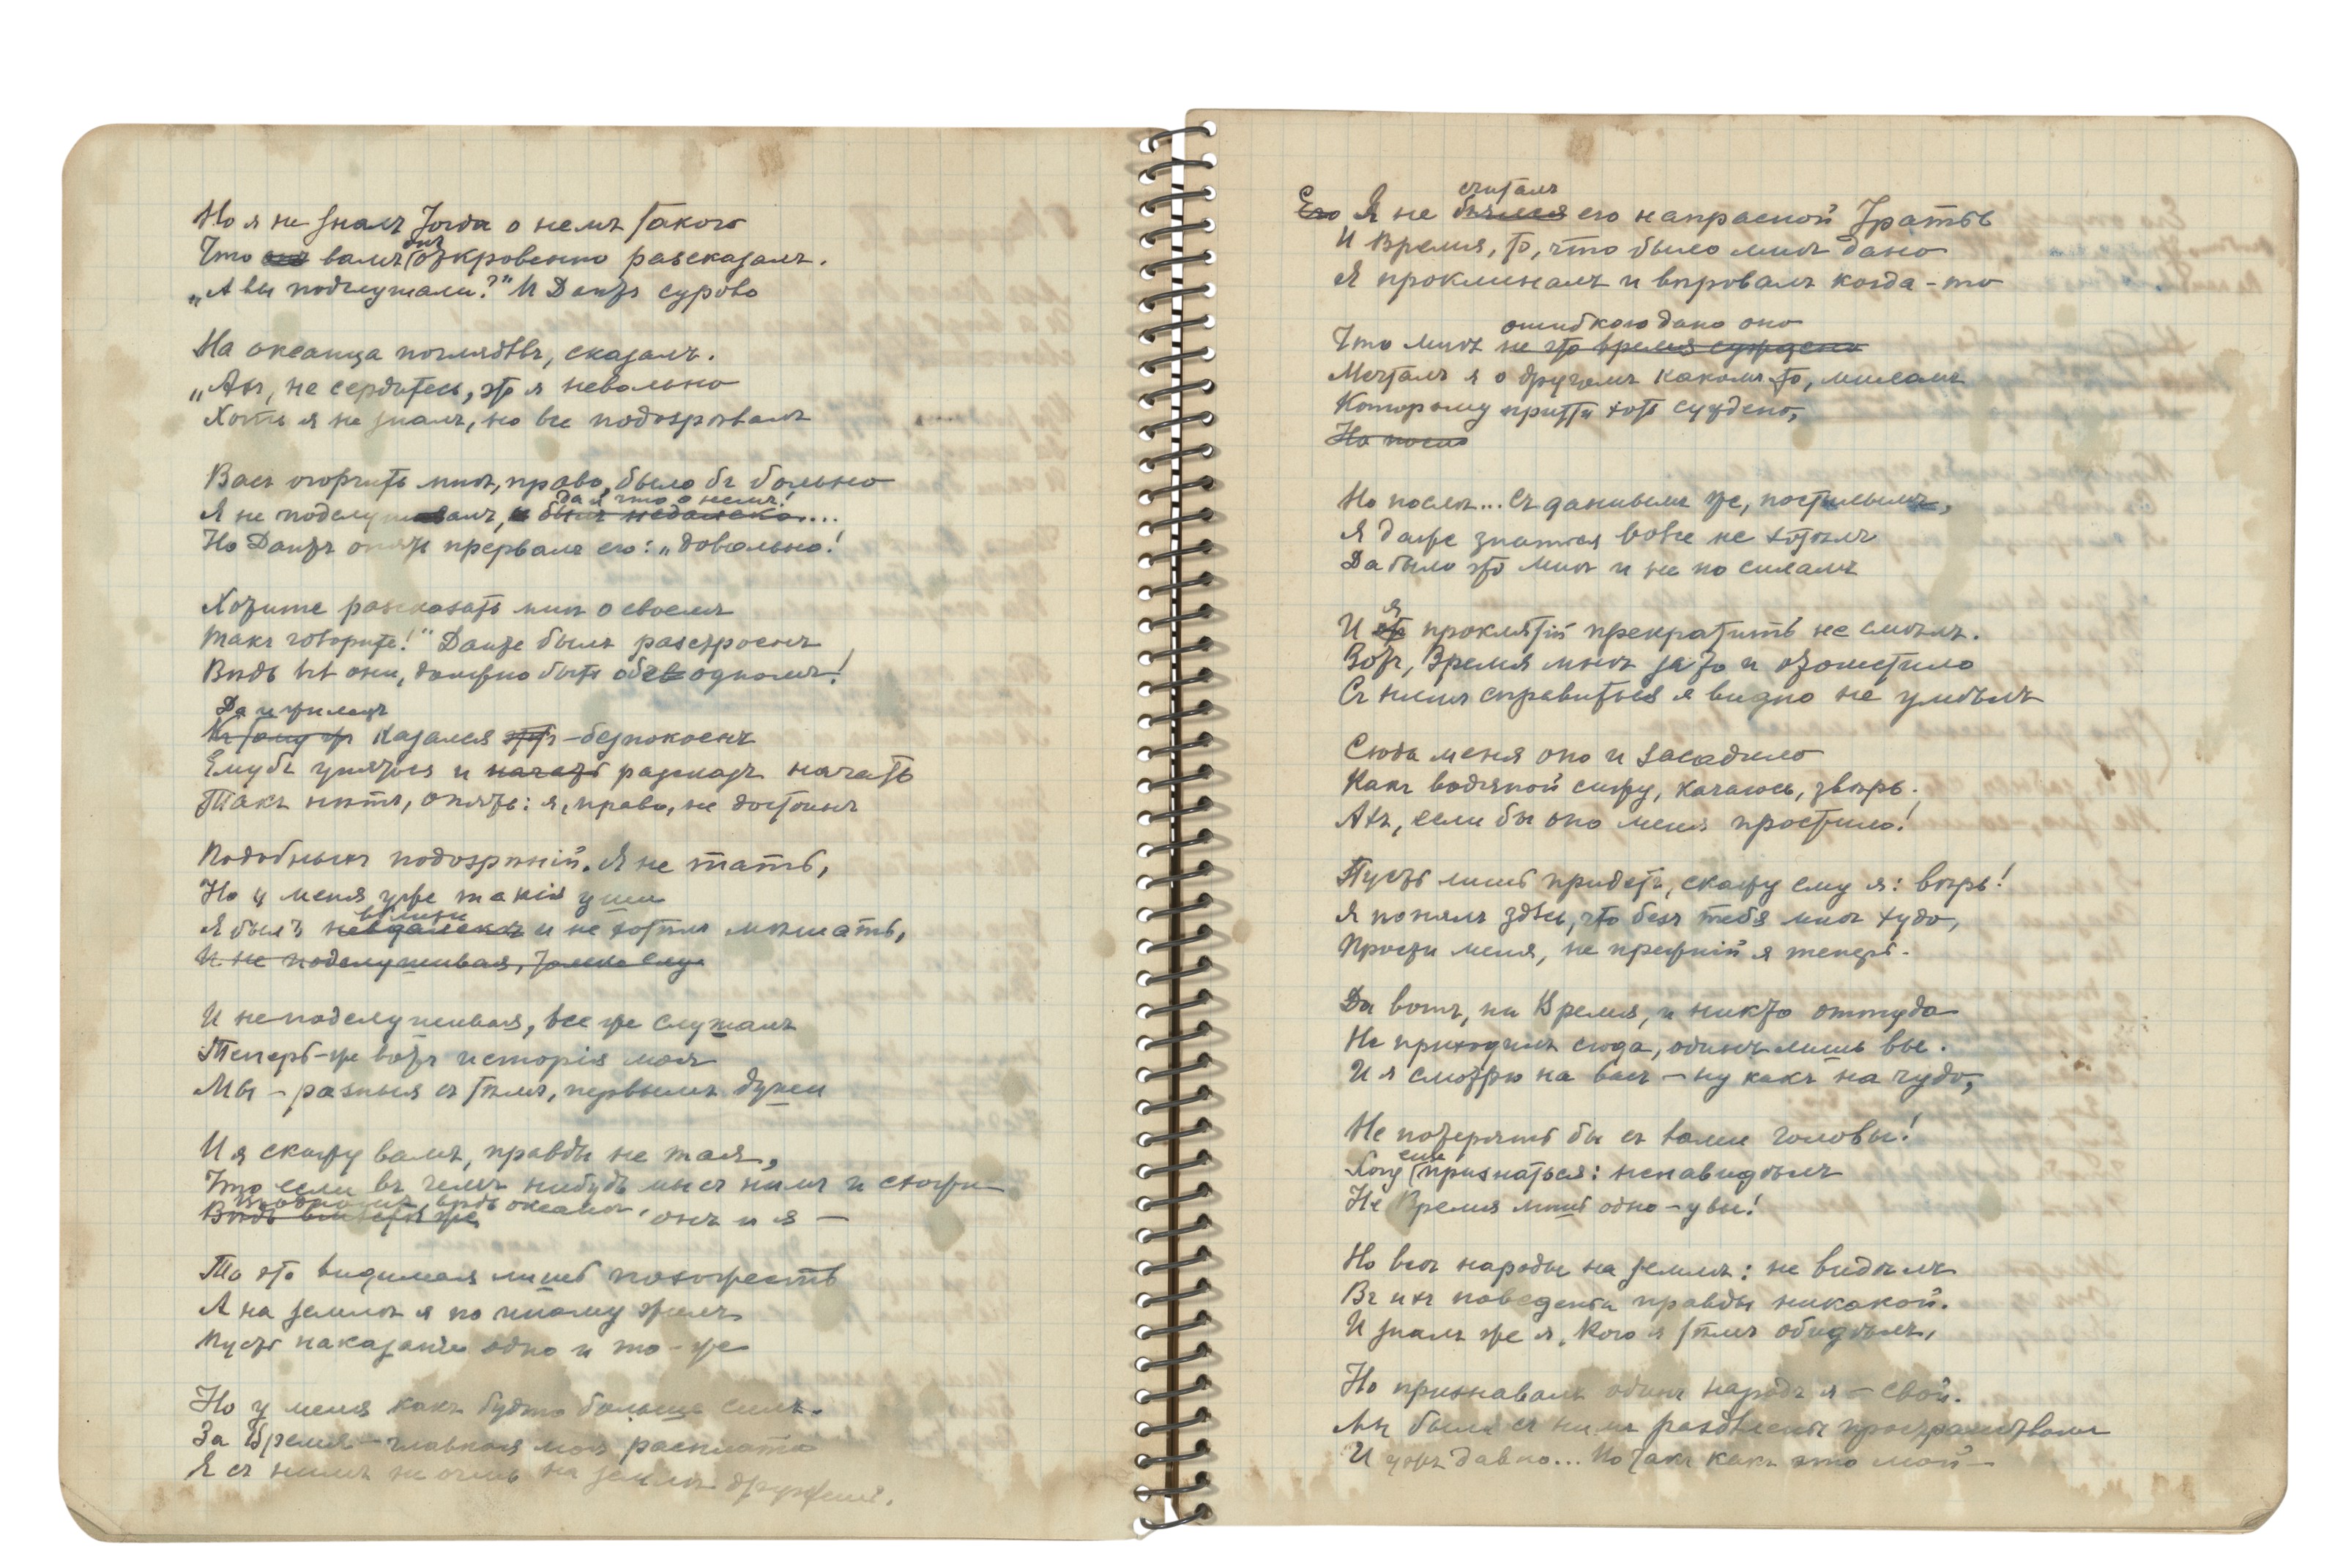 Но я не зналъ тогда о немъ такого
Что вамъ онъ откровенно разсказалъ.
„А вы подслушали?" И Дантъ сурово
На океанца поглядѣвъ, сказалъ.
„Ахъ, не сердитесь, это я невольно
Хоть я не зналъ, но все подозрѣвалъ
Васъ огорчить мнѣ, право, было бъ больно
да я что о немъ!
Я не подслушивалъ, и былъ недалеко....
Но Дантъ опять прервалъ его: „довольно!
Хотите разсказать мнѣ о своемъ
Такъ говорите!" Данте былъ разстроенъ
Вѣдь всѣ они, должно быть объ одномъ!
Да и жилецъ
Къ тому жъ казался этотъ – безпокоенъ
Ему бъ уняться и начать разсказъ начать
Такъ нѣтъ, опять: я, право, не достоинъ
Подобныхъ подозрѣній. Я не тать,
Но у меня уже такія уши
вблизи
Я былъ невдалекѣ и не хотѣлъ мѣшать,
И не подслушивая, только слу
И не подслушивая, все же слушалъ
Теперь-же вотъ исторія моя
Мы – разныя съ тѣмъ, первымъ души
И я скажу вамъ, правды не тая,
Что если въ чемъ нибудь мы съ нимъ и схожи
вѣдь океанъ, онъ и я –
То это видимая лишь похожесть
А на землѣ я по иному жилъ
Пусть наказанье одно и то-же
Но у меня какъ будто больше силъ.
За Время – главная моя расплата
Я съ нимъ не очень на землѣ дружилъ.
Его Я не боялся его напрасной тратѣ
считалъ
И Время, то, что было мнѣ дано
Я проклиналъ и вѣровалъ когда-то
ошибкою дано оно
Что мнѣ не это время суждено
Мечталъ я о другомъ какомъ-то, миломъ
Которому притти хоть суждено,
Но послѣ
Но послѣ... Съ даннымъ же, постылымъ,
Я даже знаться вовсе не хотѣлъ
Да было это мнѣ и не по силамъ
я
И проклятій прекратить не смѣлъ.
Вотъ, Время мнѣ за то и отомстило
Съ нимъ справиться я видно не умѣлъ
Сюда меня оно и засадило
Какъ водяной сижу, качаюсь, звѣрь.
Ахъ, если бы оно меня простило!
Пусть лишь придетъ, скажу ему я: вѣрь!
Я понялъ здѣсь, что безъ тебя мнѣ худо,
Прости меня, не прежній я теперь.
Да вотъ, ни Время, и никто оттуда
Не приходилъ сюда, одинъ лишь вы.
И я смотрю на васъ – ну какъ на чудо,
Не потерять бы съ вами головы!
еще
Хочу признаться: ненавидѣлъ
Не Время лишь одно – увы!
Но всѣ народы на землѣ: не видѣлъ
Въ ихъ поведеньи правды никакой.
И зналъ же я, кого я тѣмъ обидѣлъ,
Но признавалъ одинъ народъ я – свой.
Мы были съ нимъ раздѣлены пространствомъ
И ужъ давно... Но такъ какъ это мой –